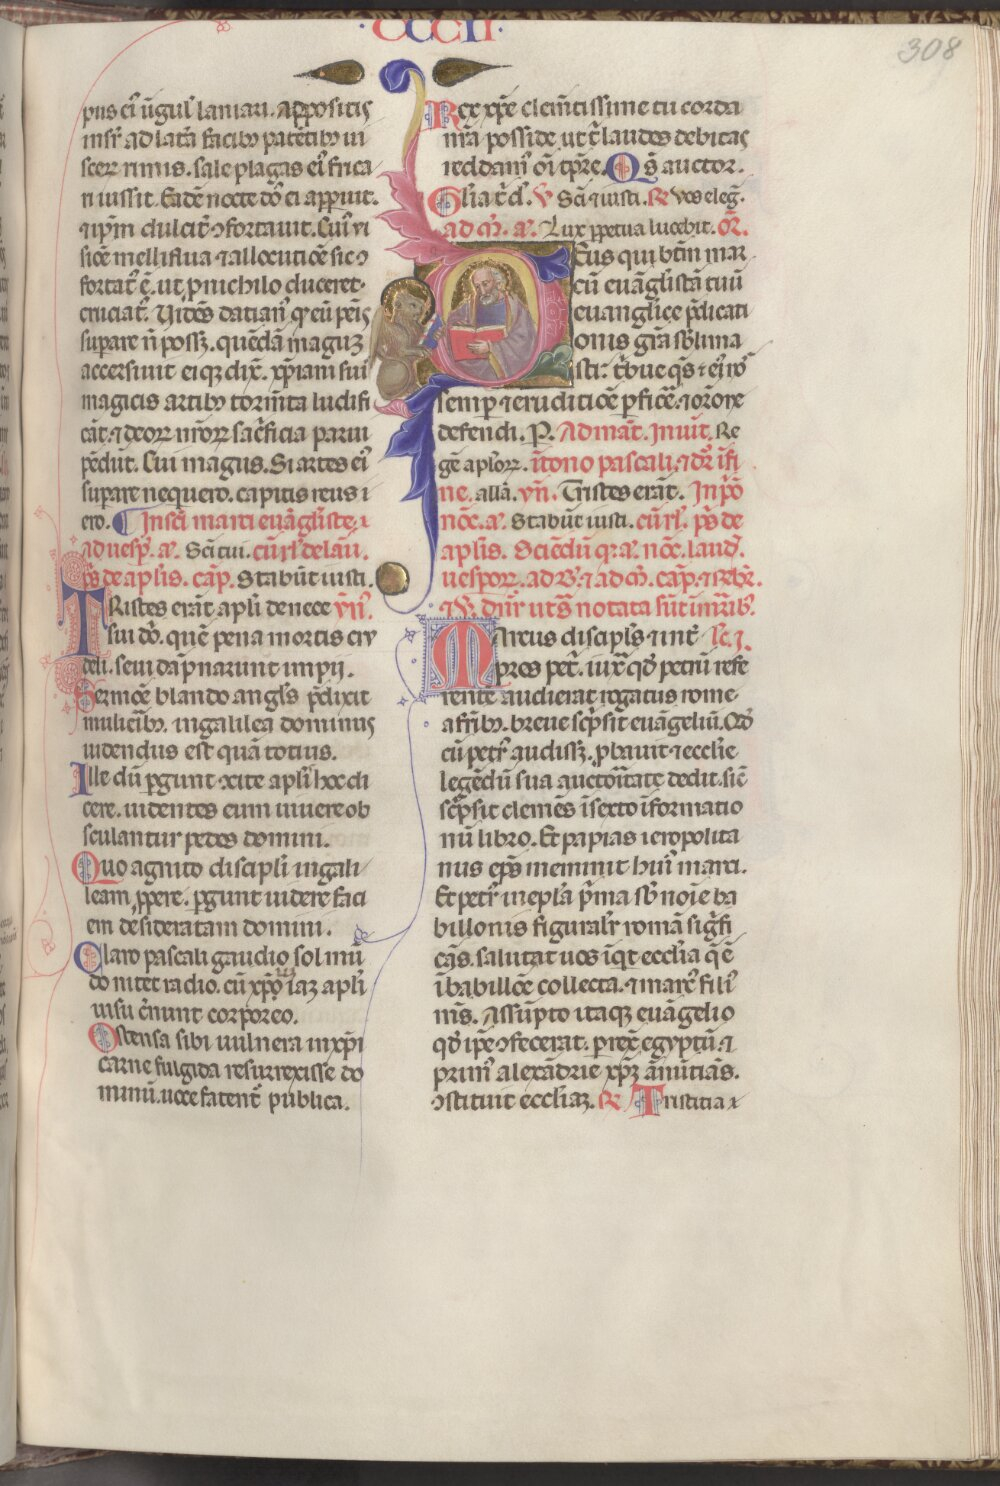 ·CCCCII·
308
pus ei ūgul' laniari. Appositis
insr̄ ad latā facib; patētib; ui
scer nimis. sale plagas ei' frica
ri iussit. Eadē nocte dō ei appuit.
⁊ ip̄m dulcit̄ ↄfortauit. Cui' ui
siōe melliflua ⁊ allocutiōe sic ↄ
fortat' ē. ut ꝓ nichilo duceret
cruciat'. Uidēs datian' qꝫ eū penis
supare n̄ possꝫ. quēdā maguꝫ
accersiuit eiqꝫ dix̄. xp̄iani sui
magicis artib; torm̄ta ludifi
cāt. ⁊ deorꝝ nr̄orꝝ sac̄ficia parui
pēdūt. Cui magus. Si artes ei'
supare nequero. capitis reus i
ero. ¶ In sc̄i marci euāgliste. ⁊
ad uesp̄. a'. Sc̄i tui. cū rl' de lau.
p̄s de aplis. cap̄. Stabūt iusti.
TRistes erāt apl̄i de nece ym̄'.
sui dō. quē pena mortis cru
deli. seui dāpnarunt impii.
Sermōe blando angl's p̄dixit
mulierib;. in galilea dominus
uidendus est quātotius.
Ille dū ꝑgunt ⁊ cite apl̄i hxc di
cere. uidentes eum uiuere ob
sculantur pedes domini.
Quo agnito discipl̄i in gali
leam ꝓpere. ꝑgunt uidere faci
em desideratam domini.
Claro pascali gaudio sol mū
do nitet radio. cū xp̄o iaꝫ apl̄i
uisu c̄nunt corporeo.
Ostensa sibi uulnera in xp̄i
carne fulgida resurrexisse do
minū. uoce fatent̄ publica.
Rex xp̄e clemētissime tu corda
nr̄a posside ut t̄ laudes debitas
reddam' oī tp̄re. Qs̄ auctor.
Gl̄ia t̄ d̄. V̄ Sc̄i ⁊ iusti. R̄ Vos eleg̅.
ad m̄. a'. Lux ppetua lucebit. Or̄.
Eus qui btm̄ mar
cū euāglistā tuū
euanglice p̄dicati
onis grā sb̄lima
sti: t̄bue qs̄ ⁊ ei' n̄o'
semp ⁊ eruditiōe ꝓficē. ⁊ orōne
defendi. P. Ad mat̄. Inuit̄. Re
gē aplorꝝ. ī tono pascali. ⁊ dr̄ ī fi
ne. allā. ym̄. Tristes erāt. In pō
nōc. a'. Stabūt iusti. cū rl'. p̄s de
aplis. Sciēdū qꝫ a'. nōc. laud̄.
uesporꝝ. ad B̄. ⁊ ad m̄. cap̄. ⁊ r̄br̄.
⁊ V̄. dn̄r ut s̄ notata sūt in cōib;.
MArcus discipl's ⁊ int̄ Lc̄. j.
pres pet̄. iux̄ qd̄ petrū refe
rente audierat rogatus rome
a fr̄ib;. breue sc̄psit euāgeliū. Qd̄
cū petr' audissꝫ. ꝓbauit ⁊ ecclīe
legēdū sua auctōitate dedit. sic̄
sc̄psit clemēs ī sexto īformatio
nū libro. Et papias ieropolita
nus ep̄s meminit hui' marci.
Et petr' in epl̄a p̄ma sb̄ noīe ba
billonis figuralr̄ romā sigfi
cās. salutat uos īqt eccl̄ia q̄ ē
ī babillōe collecta. ⁊ marc' fili'
m̄s. Assūpto itaqꝫ euāgelio
qd̄ ip̄e ↄfecerat. p̄rex̄ egyptū. ⁊
prim' alexādrie xp̄ꝫ ānūtiās.
ↄstituit eccl̄iaꝫ. R̄ Tristitia ⁊